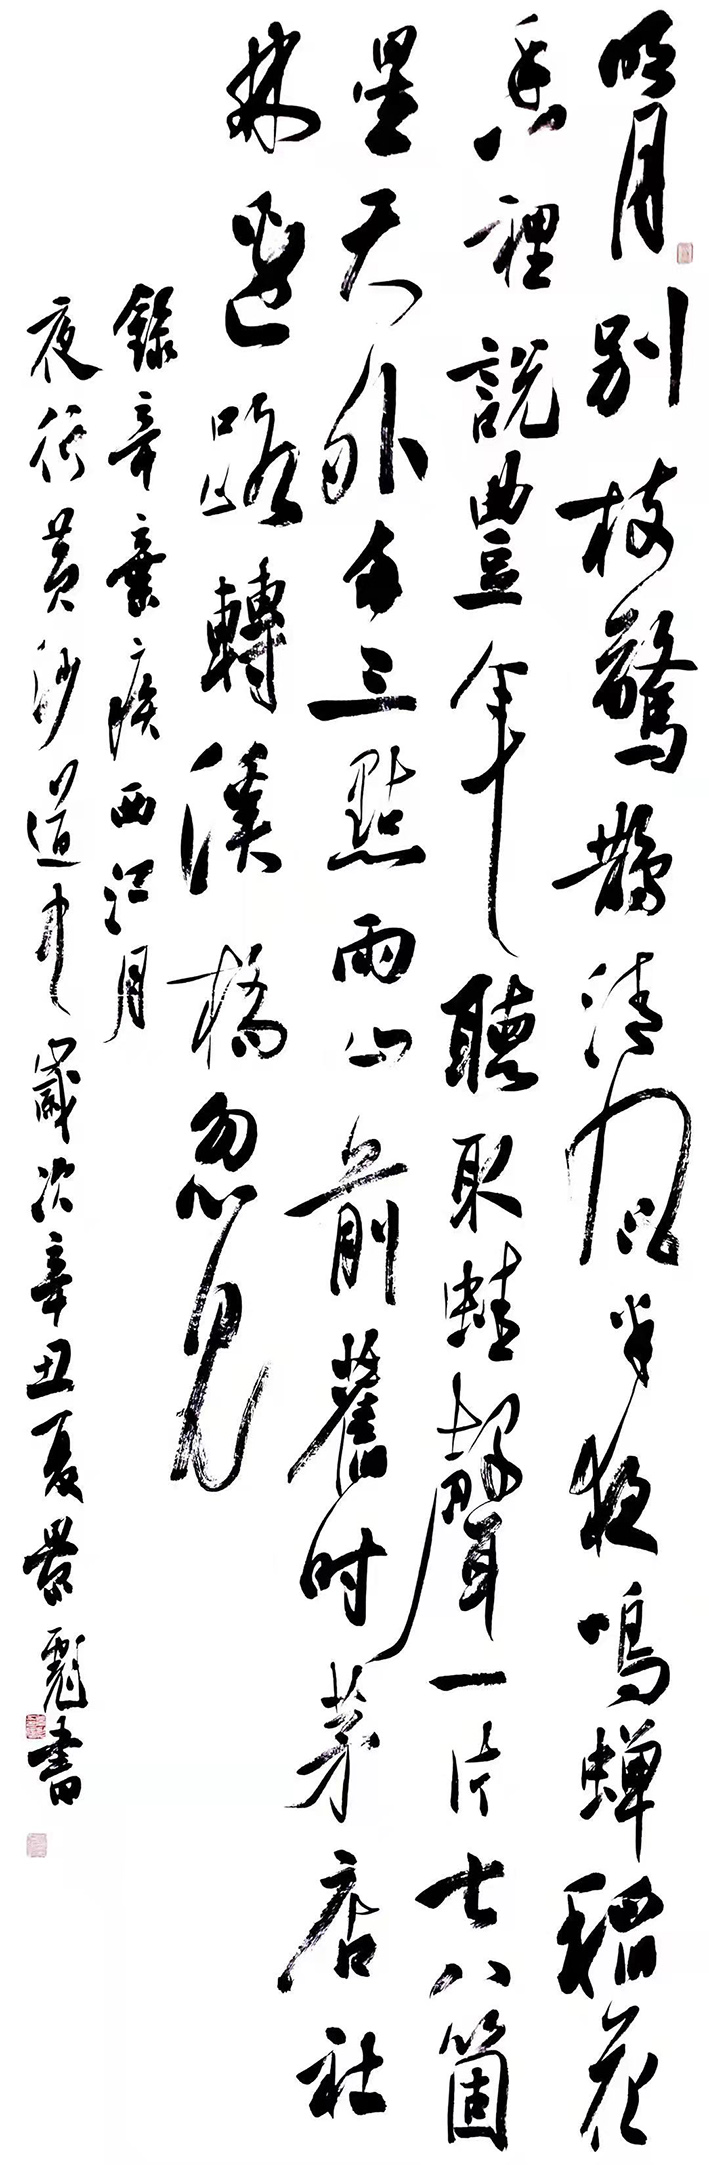 明月别枝驚鵲清風半夜鳴蝉稻花
香裡説豐年聽取蛙聲一片七八箇
星天外兩三點雨山前舊时茅店社
林邊路轉溪橋忽見
錄辛棄疾西江月
夜行黄沙道中歲次辛丑夏景彪書